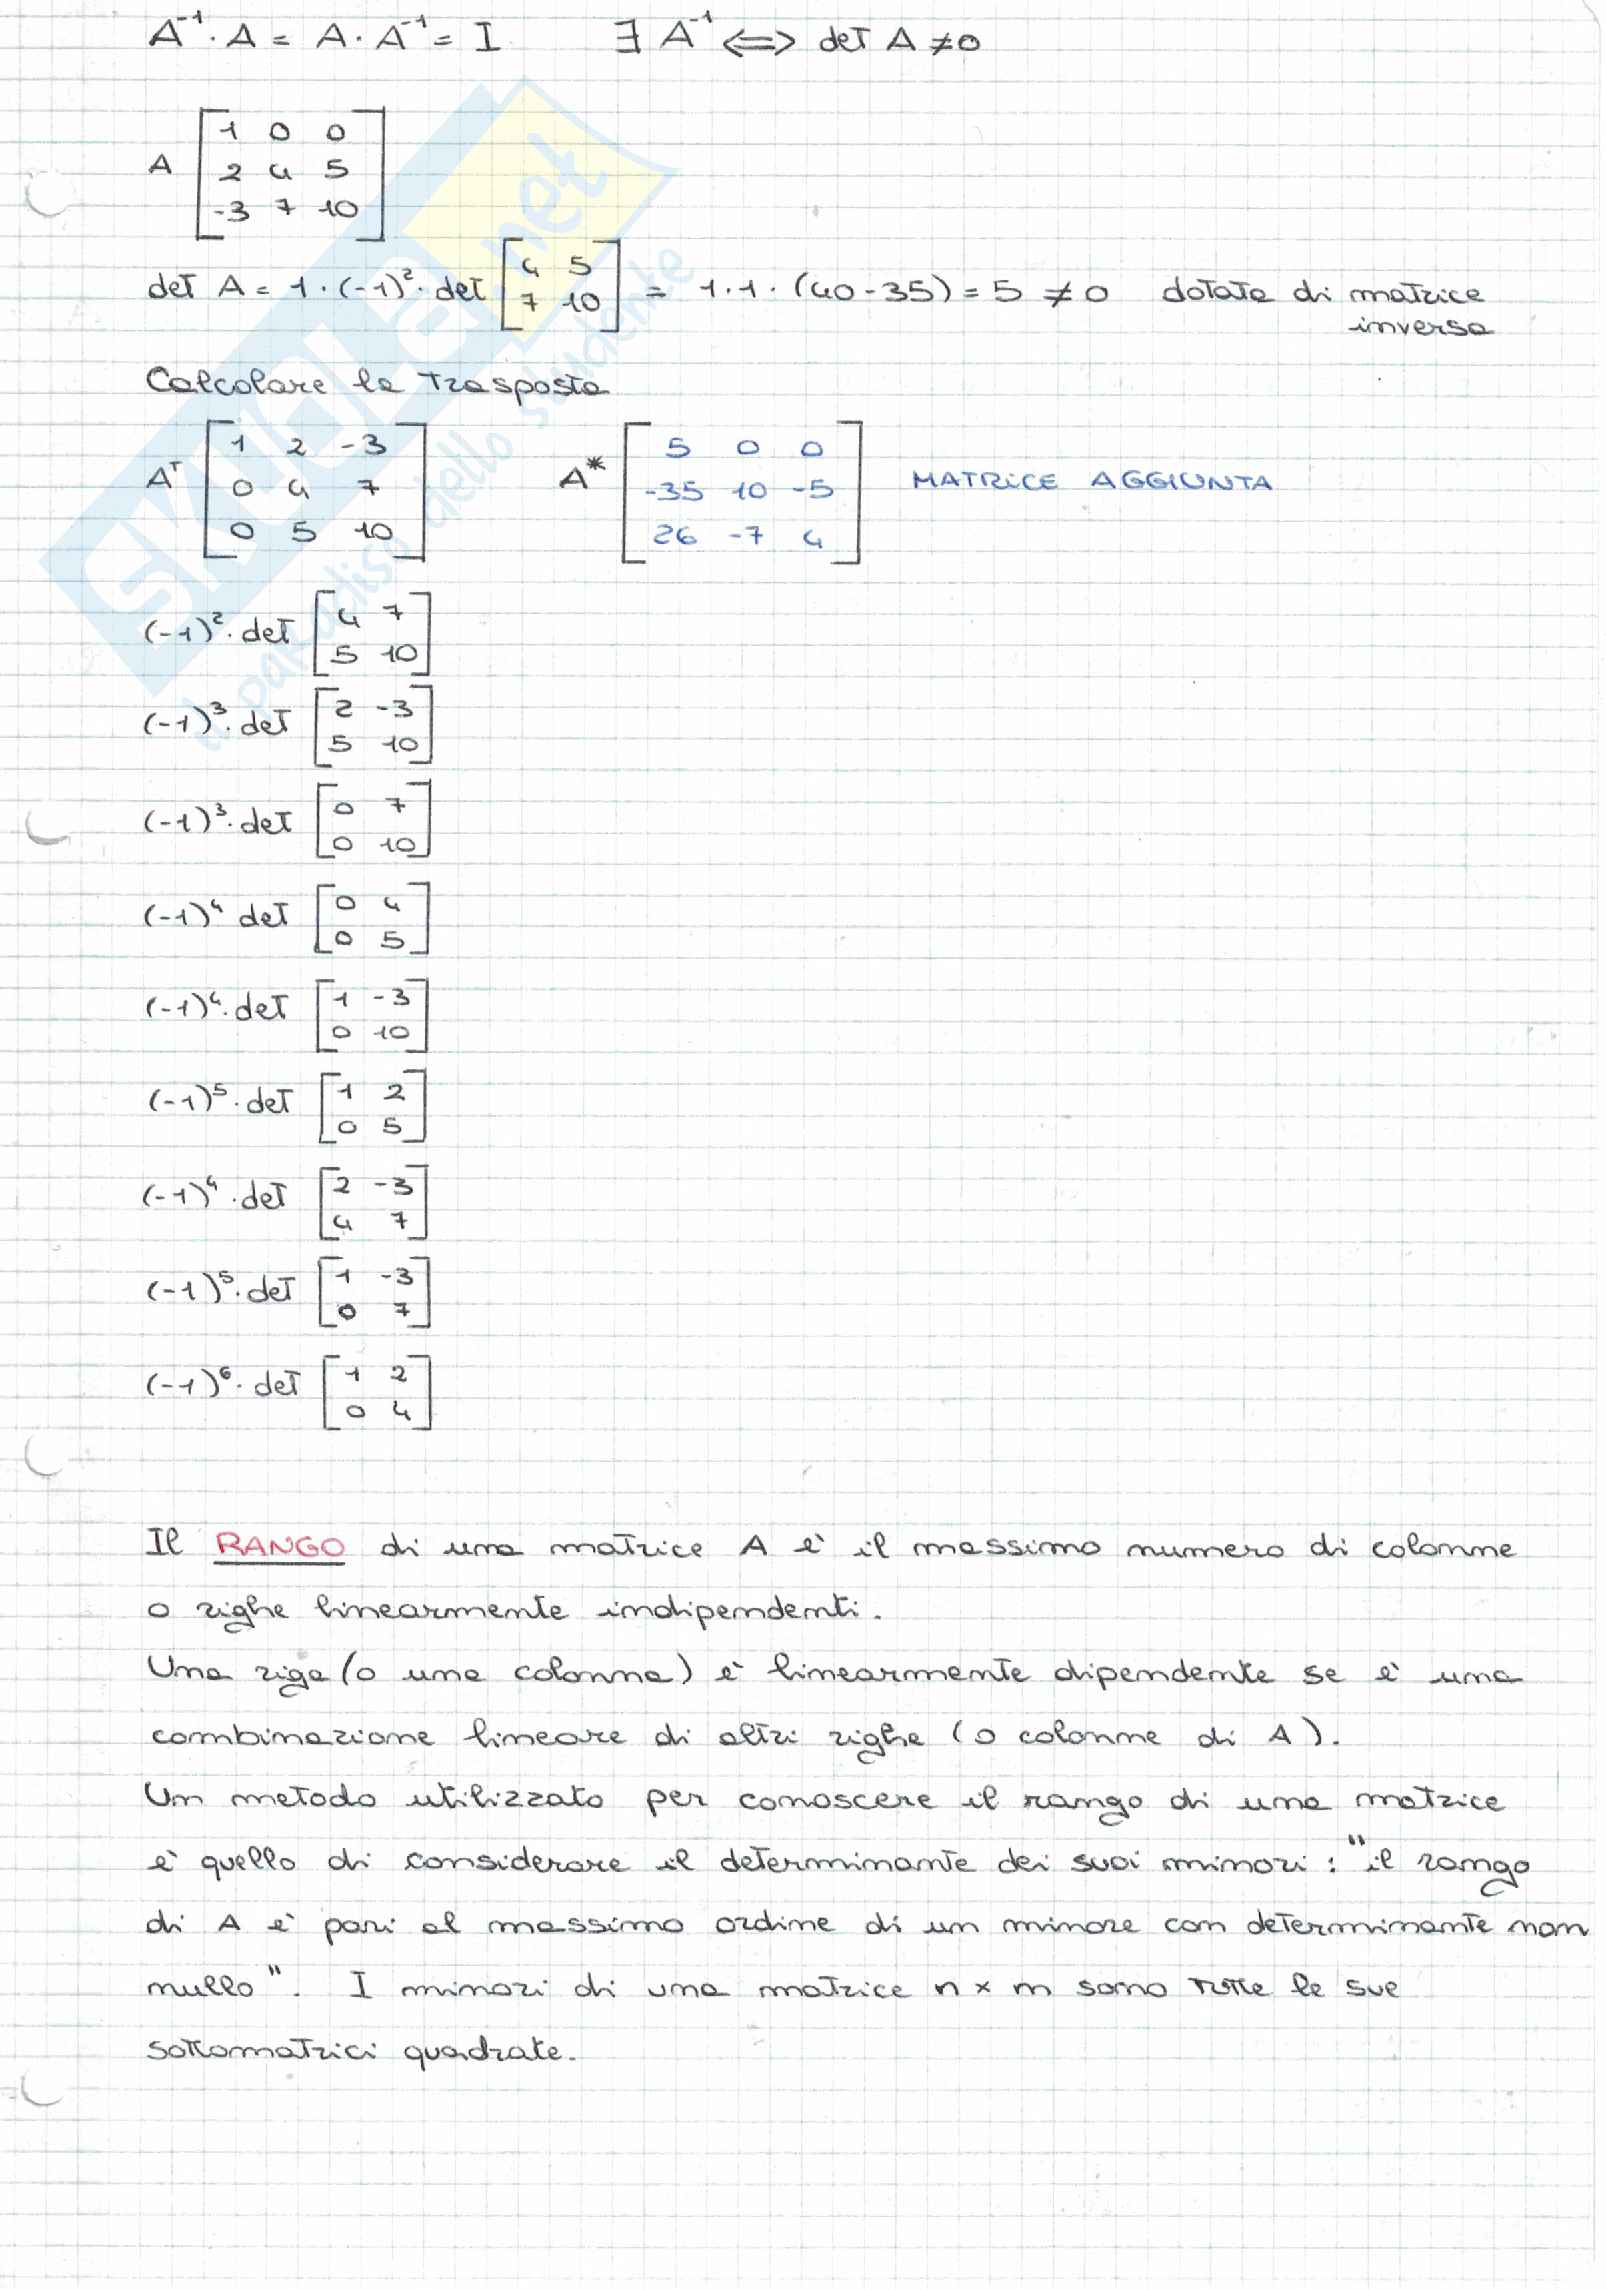 A⁻¹ · A = A · A⁻¹ = I ∃ A⁻¹ ⟺ det A ≠ 0
A [ 1 0 0
2 4 5
-3 7 10 ]
det A = 1 · (-1)² · det [ 4 5
7 10 ] = 1 · 1 · (40 - 35) = 5 ≠ 0 dotata di matrice
inversa
Calcolare la trasposta
Aᵀ [ 1 2 -3
0 4 7
0 5 10 ]
A* [ 5 0 0
-35 10 -5
26 -7 4 ] MATRICE AGGIUNTA
(-1)² · det [ 4 7
5 10 ]
(-1)³ · det [ 2 -3
5 10 ]
(-1)³ · det [ 0 7
0 10 ]
(-1)⁴ det [ 0 4
0 5 ]
(-1)⁴ · det [ 1 -3
0 10 ]
(-1)⁵ · det [ 1 2
0 5 ]
(-1)⁴ · det [ 2 -3
4 7 ]
(-1)⁵ · det [ 1 -3
0 7 ]
(-1)⁶ · det [ 1 2
0 4 ]
Il RANGO di una matrice A è il massimo numero di colonne
o righe linearmente indipendenti.
Una riga (o una colonna) è linearmente dipendente se è una
combinazione lineare di altri righe (o colonne di A).
Un metodo utilizzato per conoscere il rango di una matrice
è quello di considerare il determinante dei suoi minori: "il rango
di A è pari al massimo ordine di un minore con determinante non
nullo". I minori di una matrice n x m sono tutte le sue
sottomatrici quadrate.
skuola.net
il paradiso dello studente